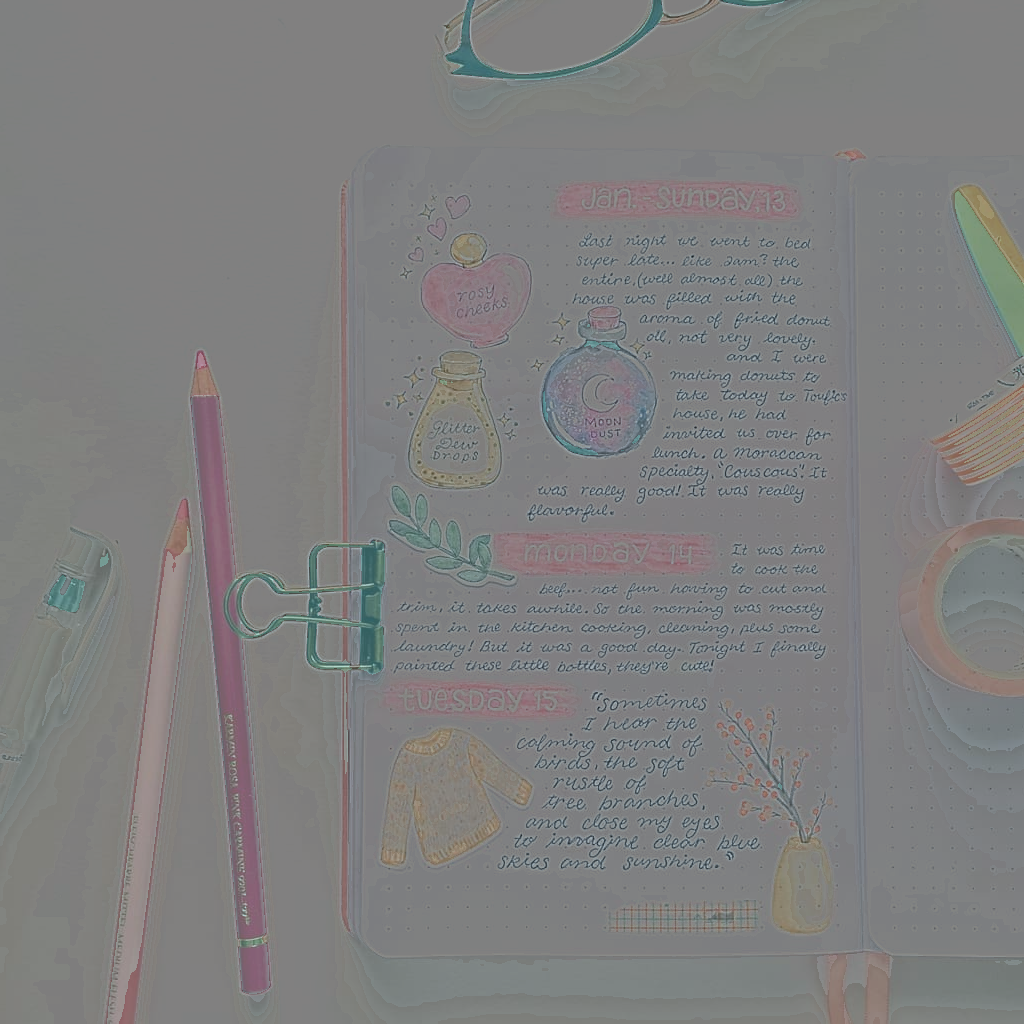 Jan. - Sunday, 13
Last night we went to bed
super late... like 2am? the
entire, (well almost all) the
house was filled with the
aroma of fried donut
oil, not very lovely.
and I were
making donuts to
take today to Toufic's
house, he had
invited us over for
lunch. A Moraccan
specialty, "Couscous". It
was really good! It was really
flavorful.
rosy
cheeks
Moon
Dust
Glitter
Dew
Drops
monday 14
It was time
to cook the
beef... not fun having to cut and
trim, it takes awhile. So the morning was mostly
spent in the kitchen cooking, cleaning, plus some
laundry! But it was a good day. Tonight I finally
painted these little bottles, they're cute!
tuesday 15
"sometimes
I hear the
calming sound of
birds, the soft
rustle of
tree branches,
and close my eyes
to imagine clear blue
skies and sunshine."